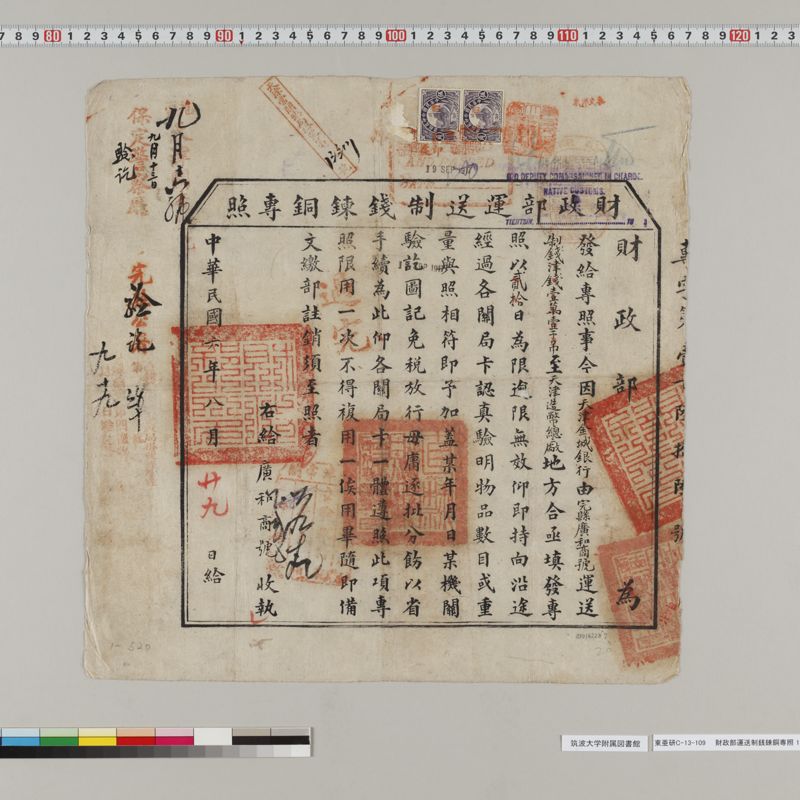 財政部運送制錢鍊銅專照
財政部為
發給專照事今因天津金城銀行由完縣廣和商號運送
制錢津錢壹萬壹千吊至天津造幣總廠地方合亟填發專
照以貳拾日為限逾限無效仰即持向沿途
經過各關局卡認真驗明物品數目或重
量與照相符即予加蓋某年月日某機關
驗訖圖記免稅放行毋庸逐批分飭以省
手續為此仰各關局卡一體遵照此項專
照限用一次不得複用一俟用畢隨即備
文繳部註銷須至照者
右給廣和商號收執
中華民國六年八月廿九日給
九月六號
九月十三日
驗訖
驗訖
19 SEP 1917
FOR DEPUTY COMMISSIONER IN CHARGE,
NATIVE CUSTOMS.
TIENTSIN,
1-520
筑波大学附属図書館
東亜研C-13-109 財政部運送制銭錬銅専照 1
80 90 100 110 120